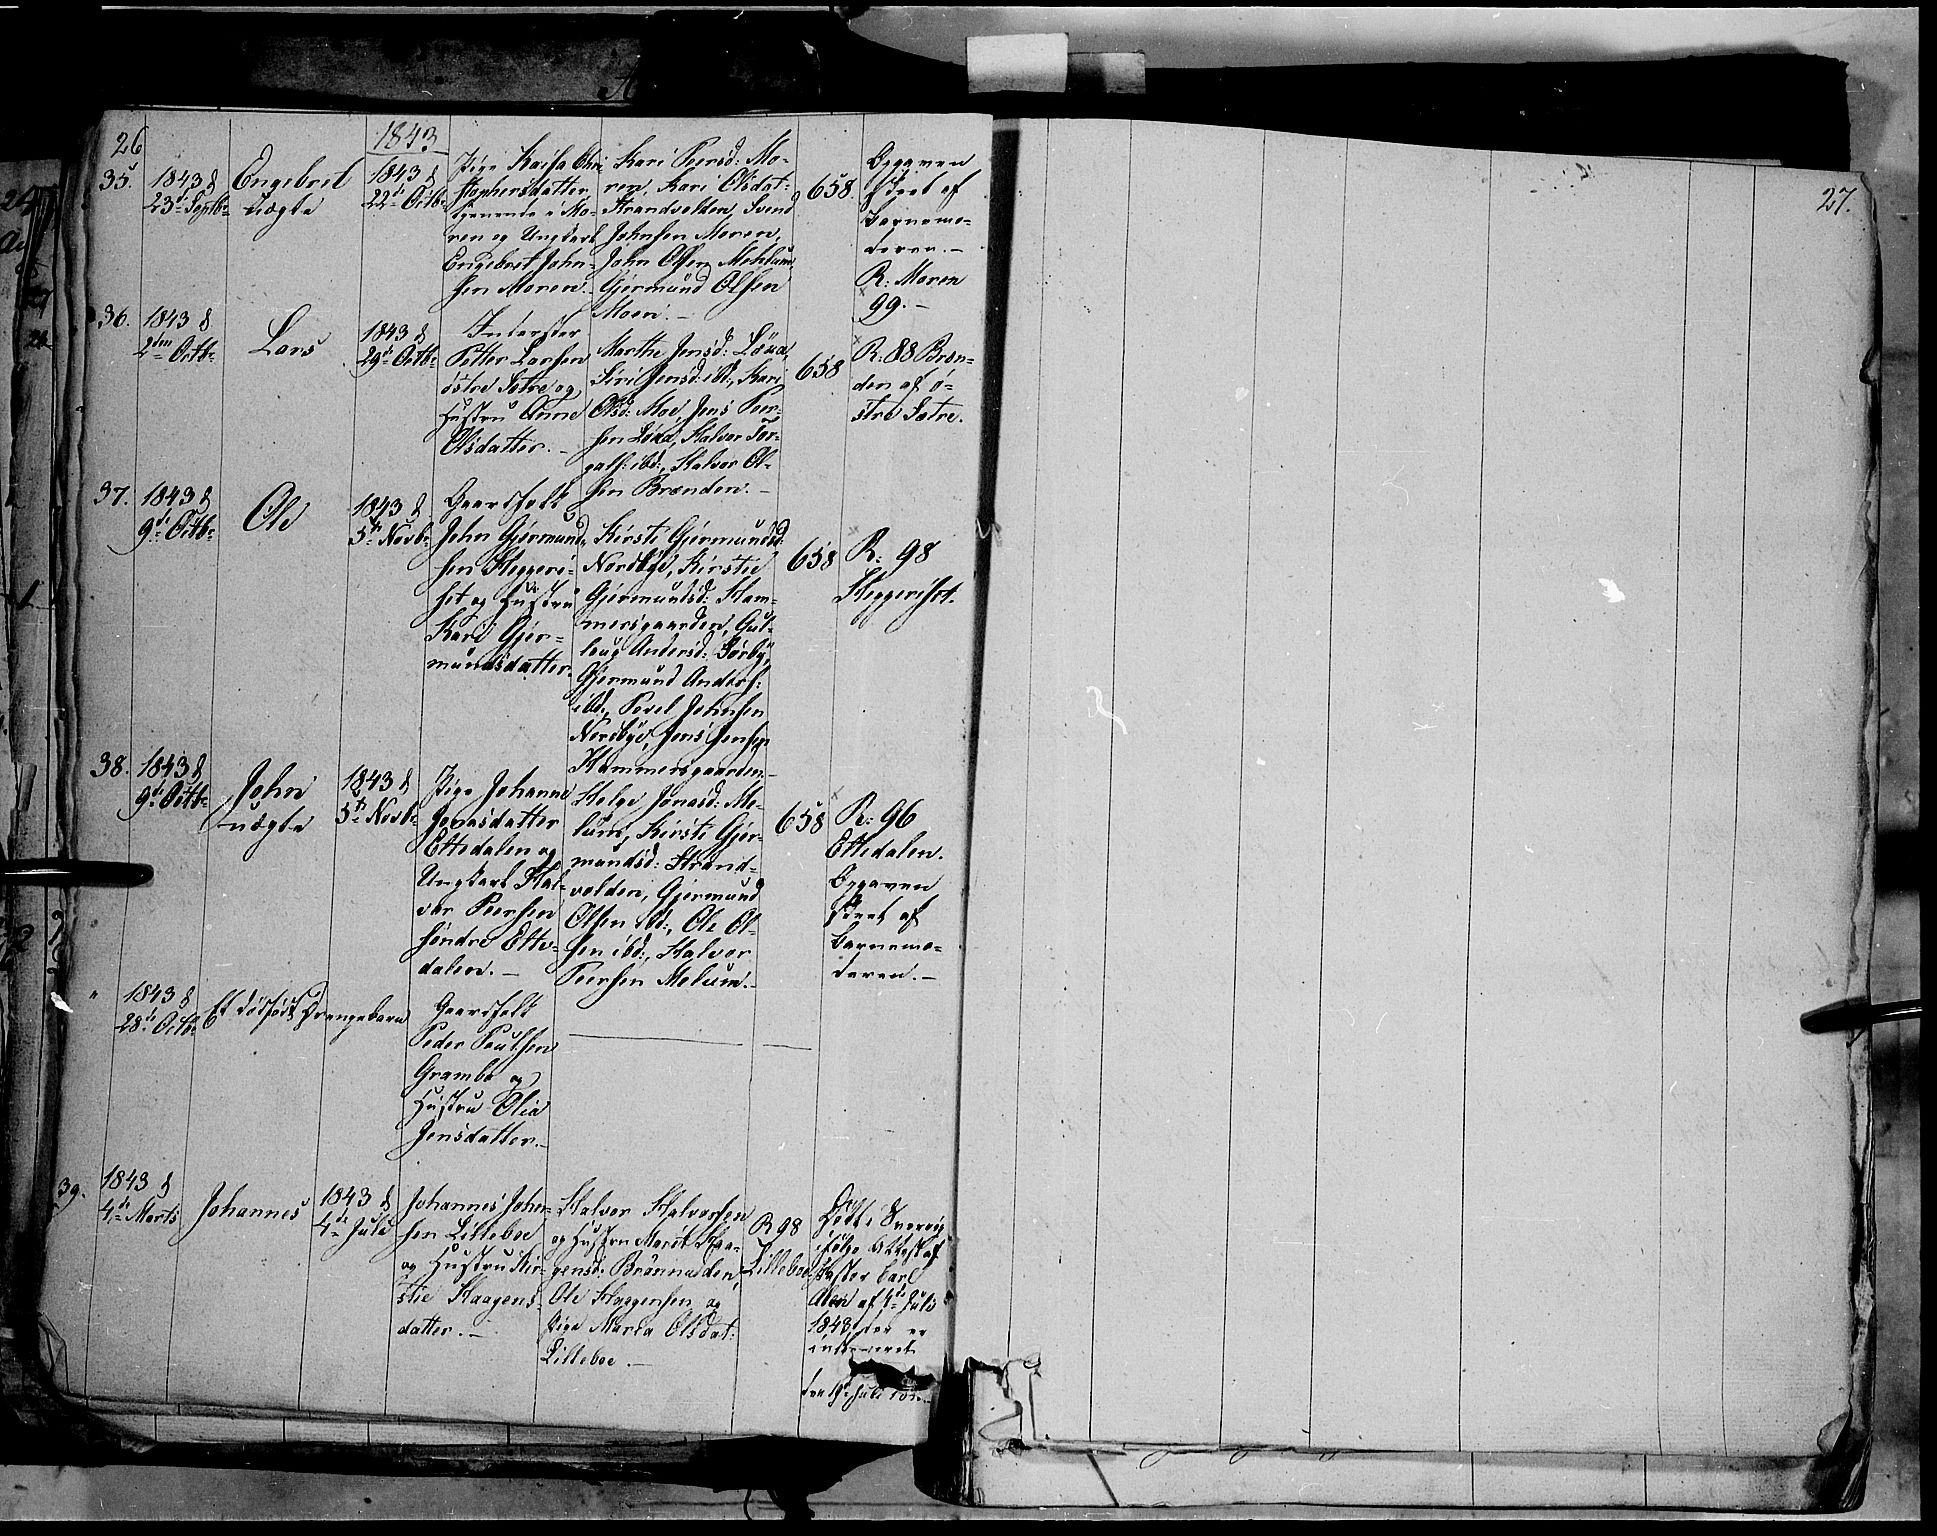 26
1843
35.
1843 d
23de Septbr
Engebret
uægte
1843 d
22de Octbr
Pige Kaisa Chri
stophersdatter
tjenende i Mo-
ren og Ungkarl
Engebret John-
sen Moren.
Kari Peersd: Mo-
ren, Kari Olsdat:
Strandvolden, Svend
Johnsen Moren,
John Olsen Mehlum,
Gjermund Olsen
Moen. —
658.
Opgaven
skeet af
Barnemo-
deren. —
R: Moren
99. —
36.
1843 d
2den Octbr
Lars
1843 d
29de Octbr
Inderster
Petter Larsen
östre Sætre og
Hustru Anne
Olsdatter. —
Marthe Jensd: Löxa,
Siri Jensd: ibd:, Kari
Olsd: Moe, Jens Peer-
sen Löxa, Halvor Tor-
gals: ibd:, Halvor Ol-
sen Brænden. —
658
R: 88 Bræn-
den af ö-
stre Sætre.
37.
1843 d
9de Octbr
Ole
1843 d
5te Novbr
Gaardfolk
John Gjermund-
sen Skjeggeri-
set og Hustru
Kari Gjer-
mundsdatter.
Kirsti Gjermundsd:
Nordbye, Kirstie
Gjermundsd: Ham-
mersgaarden, Gul-
laug Andersd: Sörby,
Gjermund Anders:
ibd:, Povel Johnsen
Nordbye, Jens Jensen
Hammersgaarden. —
658
R: 98
Skjeggeriset.
38.
1843 d
9de Octbr
John
uægte
1843 d
5te Novbr
Pige Johanne
Jonasdatter
Ettedalen og
Ungkarl Hal-
vor Peersen
söndre Ette-
dalen. —
Helge Jonasd: Me-
lum, Kirsti Gjer-
mundsd: Strand-
volden, Gjermund
Olsen ibd:, Ole Ol-
sen ibd:, Halvor
Peersen Melum. —
658
R: 96
Ettedalen.
Opgaven
skeet af
Barnemo-
deren. —
"
1843 d
28de Octbr
Et dödfödt Drengebarn
Gaardfolk
Peder Poulsen
Grambo og
Hustru Olia
Jensdatter. —
39.
1843 d
4de Marts
Johannes
1843 d
4de Juli
Johannes John-
sen Lilleboe
og Hustru Kir-
stie Haagens-
datter. —
Halvor Halvorsen
og Hustru Marit Haa-
gensd: Brönnalden,
Ole Haagensen og
Pige Maria Olsdat:
Lilleboe. —
R 98
Lilleboe
Födt i Sverrig
ifölge Attest af
Pastor Carl
af 4de Juli
1843, der er
den 19de Juli
27.